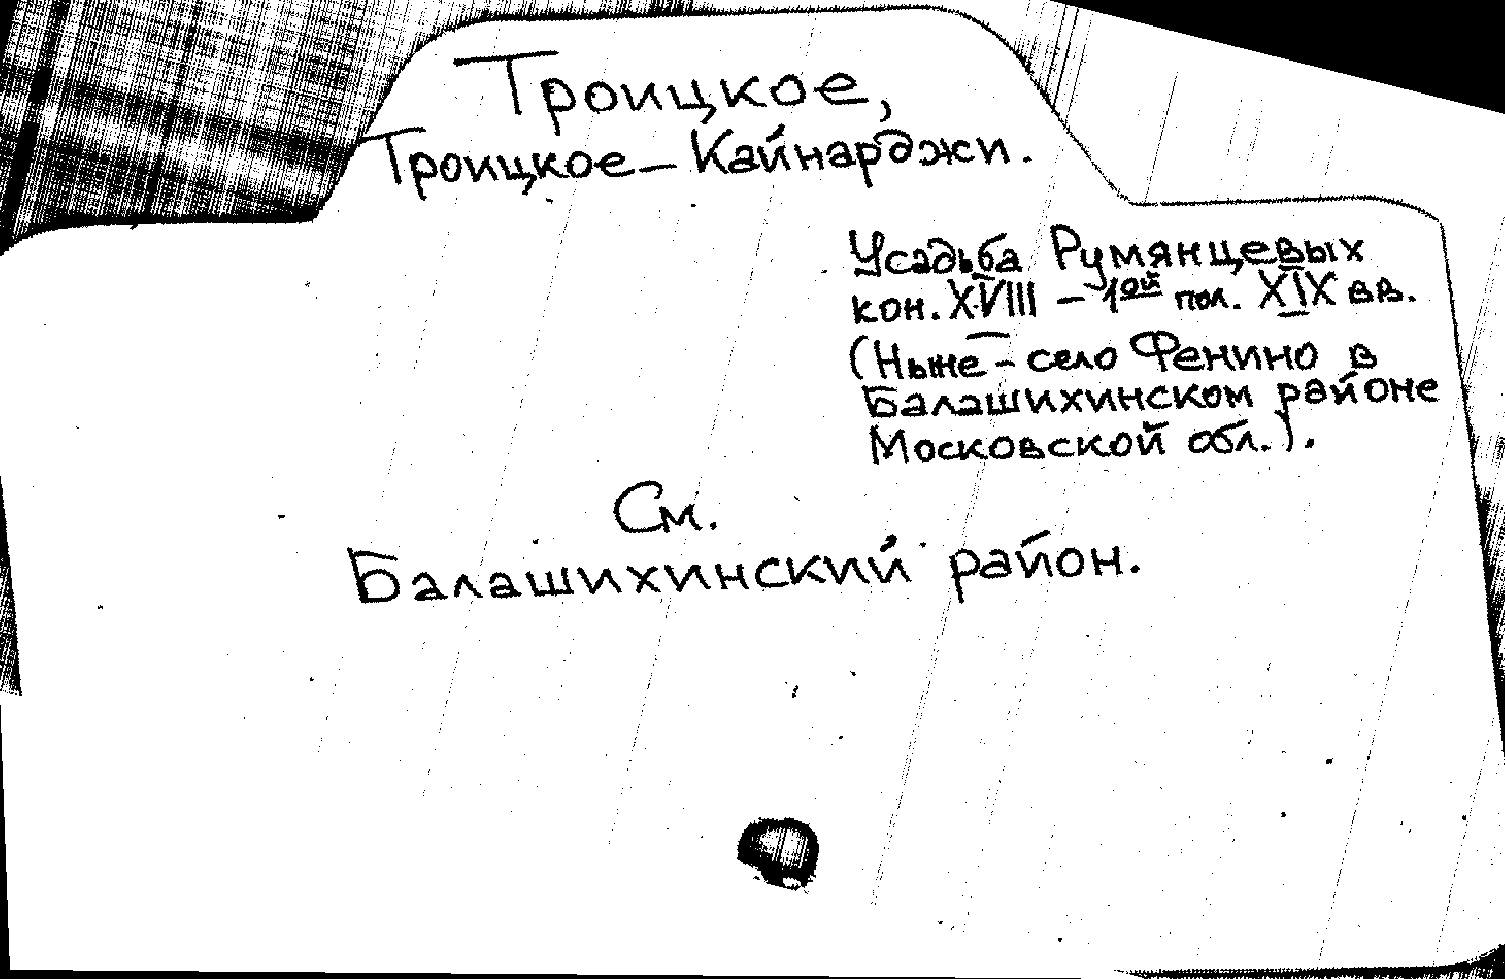 Троицкое,
Троицкое - Кайнарджи.
Усадьба Румянцевых
кон. XVIII - 1ой пол. XIX вв.
(Ныне - село Фенино в
Балашихинском районе
Московской обл.).
См.
Балашихинский район.